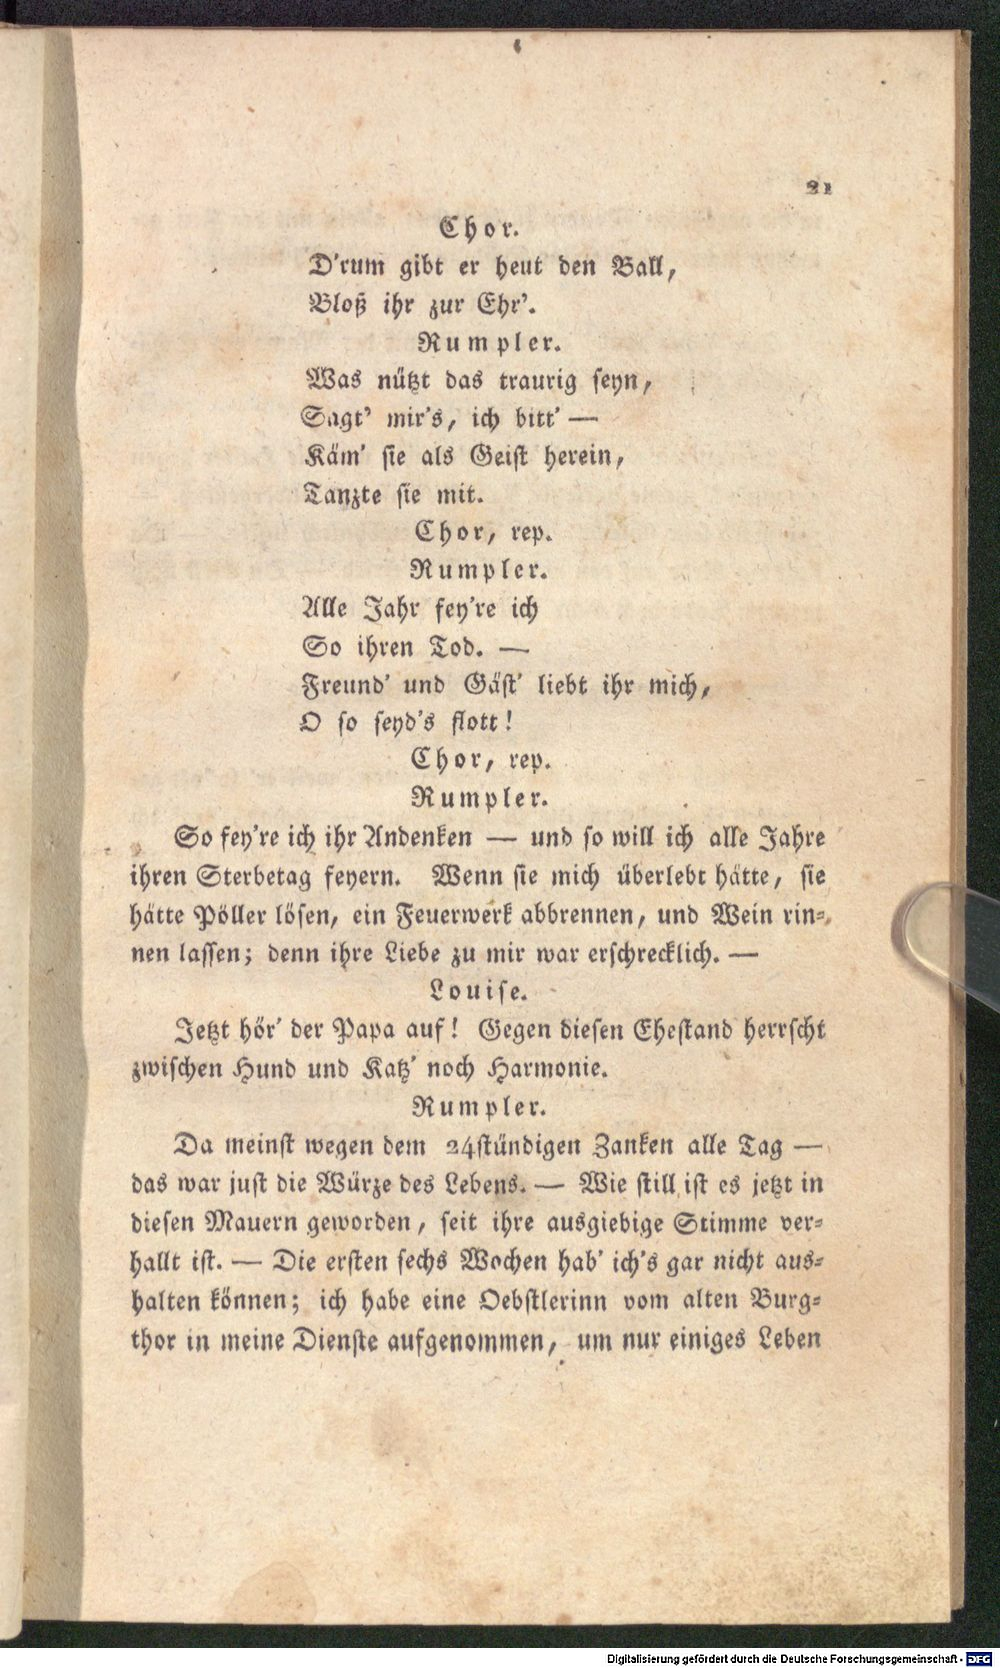 21
Chor.
D'rum gibt er heut den Ball,
Bloß ihr zur Ehr'.
Rumpler.
Was nützt das traurig seyn,
Sagt' mir's, ich bitt' —
Käm' sie als Geist herein,
Tanzte sie mit.
Chor, rep.
Rumpler.
Alle Jahr fey're ich
So ihren Tod. —
Freund' und Gäst' liebt ihr mich,
O so seyd's flott!
Chor, rep.
Rumpler.
So fey're ich ihr Andenken — und so will ich alle Jahre
ihren Sterbetag feyern. Wenn sie mich überlebt hätte, sie
hätte Pöller lösen, ein Feuerwerk abbrennen, und Wein rin-
nen lassen; denn ihre Liebe zu mir war erschrecklich. —
Louise.
Jetzt hör' der Papa auf! Gegen diesen Ehestand herrscht
zwischen Hund und Katz' noch Harmonie.
Rumpler.
Da meinst wegen dem 24stündigen Zanken alle Tag —
das war just die Würze des Lebens. — Wie still ist es jetzt in
diesen Mauern geworden, seit ihre ausgiebige Stimme ver-
hallt ist. — Die ersten sechs Wochen hab' ich's gar nicht aus-
halten können; ich habe eine Oebstlerinn vom alten Burg-
thor in meine Dienste aufgenommen, um nur einiges Leben
Digitalisierung gefördert durch die Deutsche Forschungsgemeinschaft - DFG